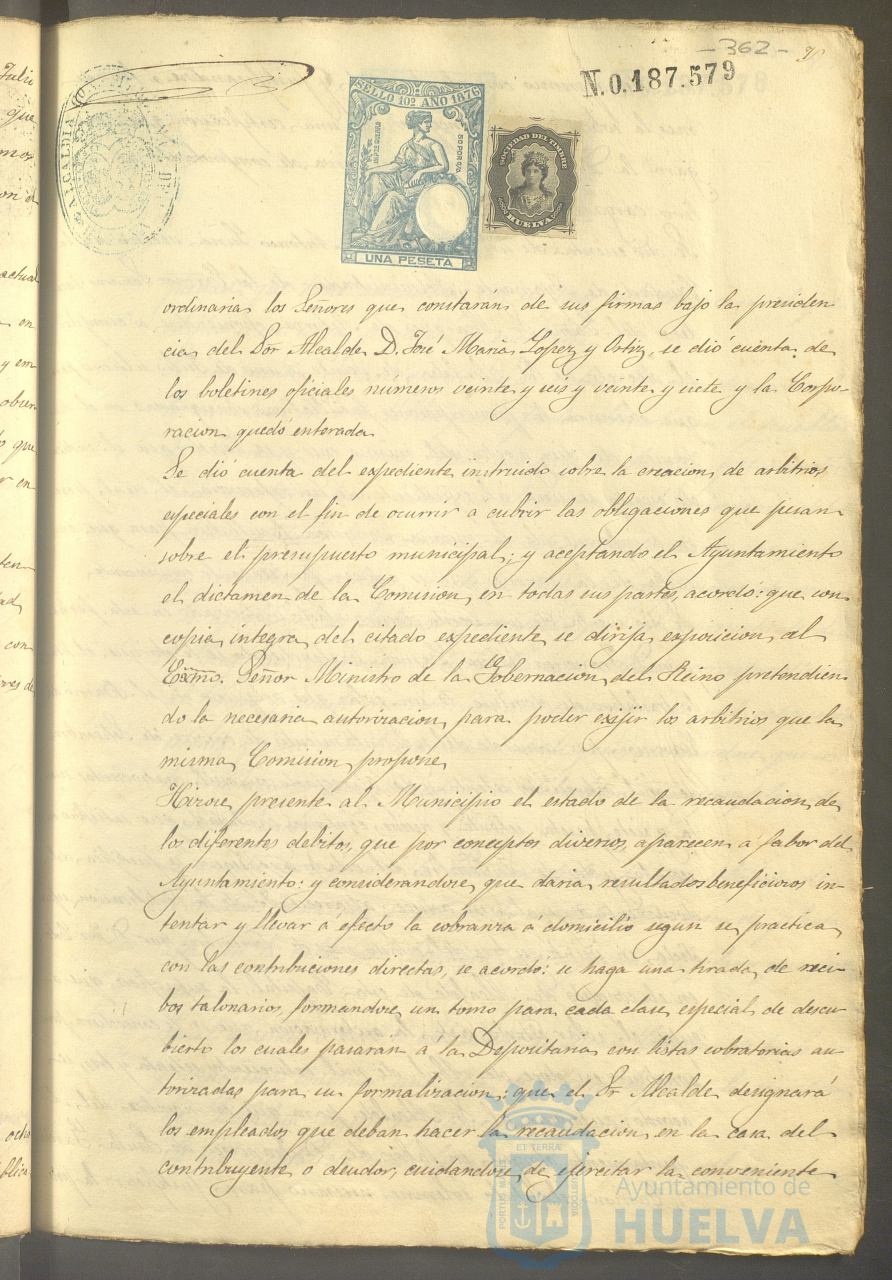 - 362 -
N. 0.187.579
SELLO 10º AÑO 1876
50 POR 0/0
UNA PESETA
SOCIEDAD DEL TIMBRE
HUELVA
ALCALDIA
ordinaria los Señores que constarán de sus firmas bajo la presiden
cia del Sor Alcalde D. José Maria Lopez y Ortiz, se dió cuenta de
los boletines oficiales números veinte y seis y veinte y siete y la Corpo-
racion quedó enterada
Se dió cuenta del expediente instruido sobre la creacion de arbitrios
especiales con el fin de ocurrir á cubrir las obligaciones que pesan
sobre el presupuesto municipal; y aceptando el Ayuntamiento
el dictamen de la Comision, en todas sus partes, acordó: que con
copia integra del citado expediente se dirija exposicion al
Exmo. Señor Ministro de la Gobernacion del Reino pretendien
do la necesaria autorizacion para poder exijir los arbitrios que la
misma Comision propone
Hizose presente al Municipio el estado de la recaudacion de
los diferentes debitos, que por conceptos diversos aparecen á fabor del
Ayuntamiento: y considerandose que daria resultados beneficiosos in-
tentar y llevar á efecto la cobranza á domicilio segun se practica
con las contribuciones directas, se acordó: se haga una tirada de reci-
bos talonarios, formandose un tomo para cada clase especial de descu-
bierto los cuales pasarán á la Depositaria con listas cobratorias au-
torizadas para su formalizacion; que el Sr Alcalde designará
los empleados que deban hacer la recaudacion en la casa del
contribuyente o deudor, cuidandose de ejercitar la conveniente
PORTUS MARIS
ET TERRÆ
CUSTODIA
Ayuntamiento de
HUELVA